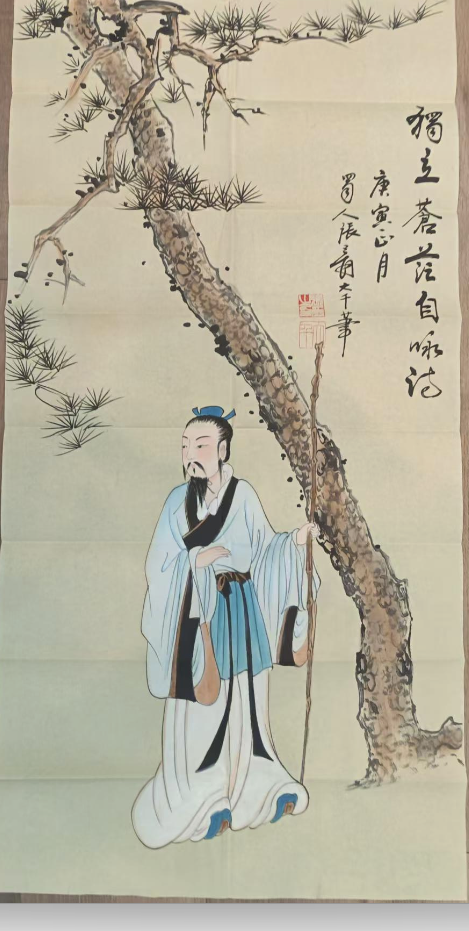 獨立蒼茫自咏诗
庚寅正月
蜀人张爰大千筆